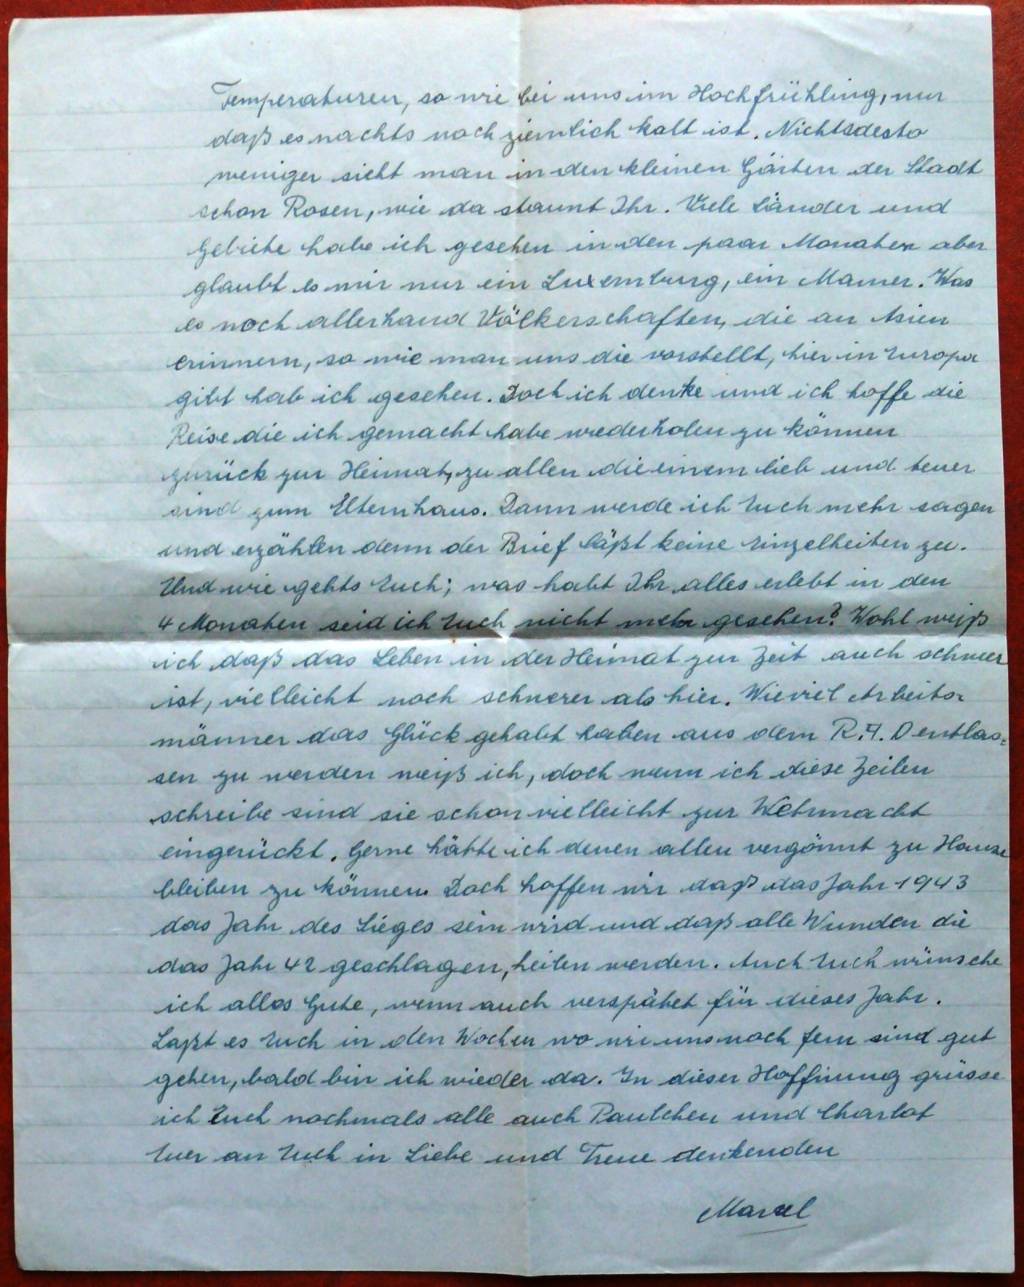 Temperaturen, so wie bei uns im Hochfrühling, nur
daß es nachts noch ziemlich kalt ist. Nichtsdesto
weniger sieht man in den kleinen Gärten der Stadt
schon Rosen, wie da staunt Ihr. Viele Länder und
Gebiete habe ich gesehen in den paar Monaten aber
glaubt es mir nur ein Luxemburg, ein Mamer. Was
es noch allerhand Völkerschaften, die an Asien
erinnern, so wie man uns die vorstellt, hier in Europa
gibt hab ich gesehen. Doch ich denke und ich hoffe die
Reise die ich gemacht habe wiederholen zu können
zurück zur Heimat, zu allen die einem lieb und teuer
sind zum Elternhaus. Dann werde ich Euch mehr sagen
und erzählen denn der Brief läßt keine Einzelheiten zu.
Und wie gehts Euch; was habt Ihr alles erlebt in den
4 Monaten seid ich Euch nicht mehr gesehen? Wohl weiß
ich daß das Leben in der Heimat zur Zeit auch schwer
ist, vielleicht noch schwerer als hier. Wieviel Arbeits-
männer das Glück gehabt haben aus dem R.A.D entlas-
sen zu werden weiß ich, doch wenn ich diese Zeilen
schreibe sind sie schon vielleicht zur Wehrmacht
eingerückt. Gerne hätte ich denen allen vergönnt zu Hause
bleiben zu können. Doch hoffen wir daß das Jahr 1943
das Jahr des Sieges sein wird und daß alle Wunden die
das Jahr 42 geschlagen, heilen werden. Auch Euch wünsche
ich alles Gute, wenn auch verspätet für dieses Jahr.
Laßt es Euch in den Wochen wo wir uns noch fern sind gut
gehen, bald bin ich wieder da. In dieser Hoffnung grüsse
ich Euch nochmals alle auch Paulchen und Charlot
Euer an Euch in Liebe und Treue denkenden
Marcel